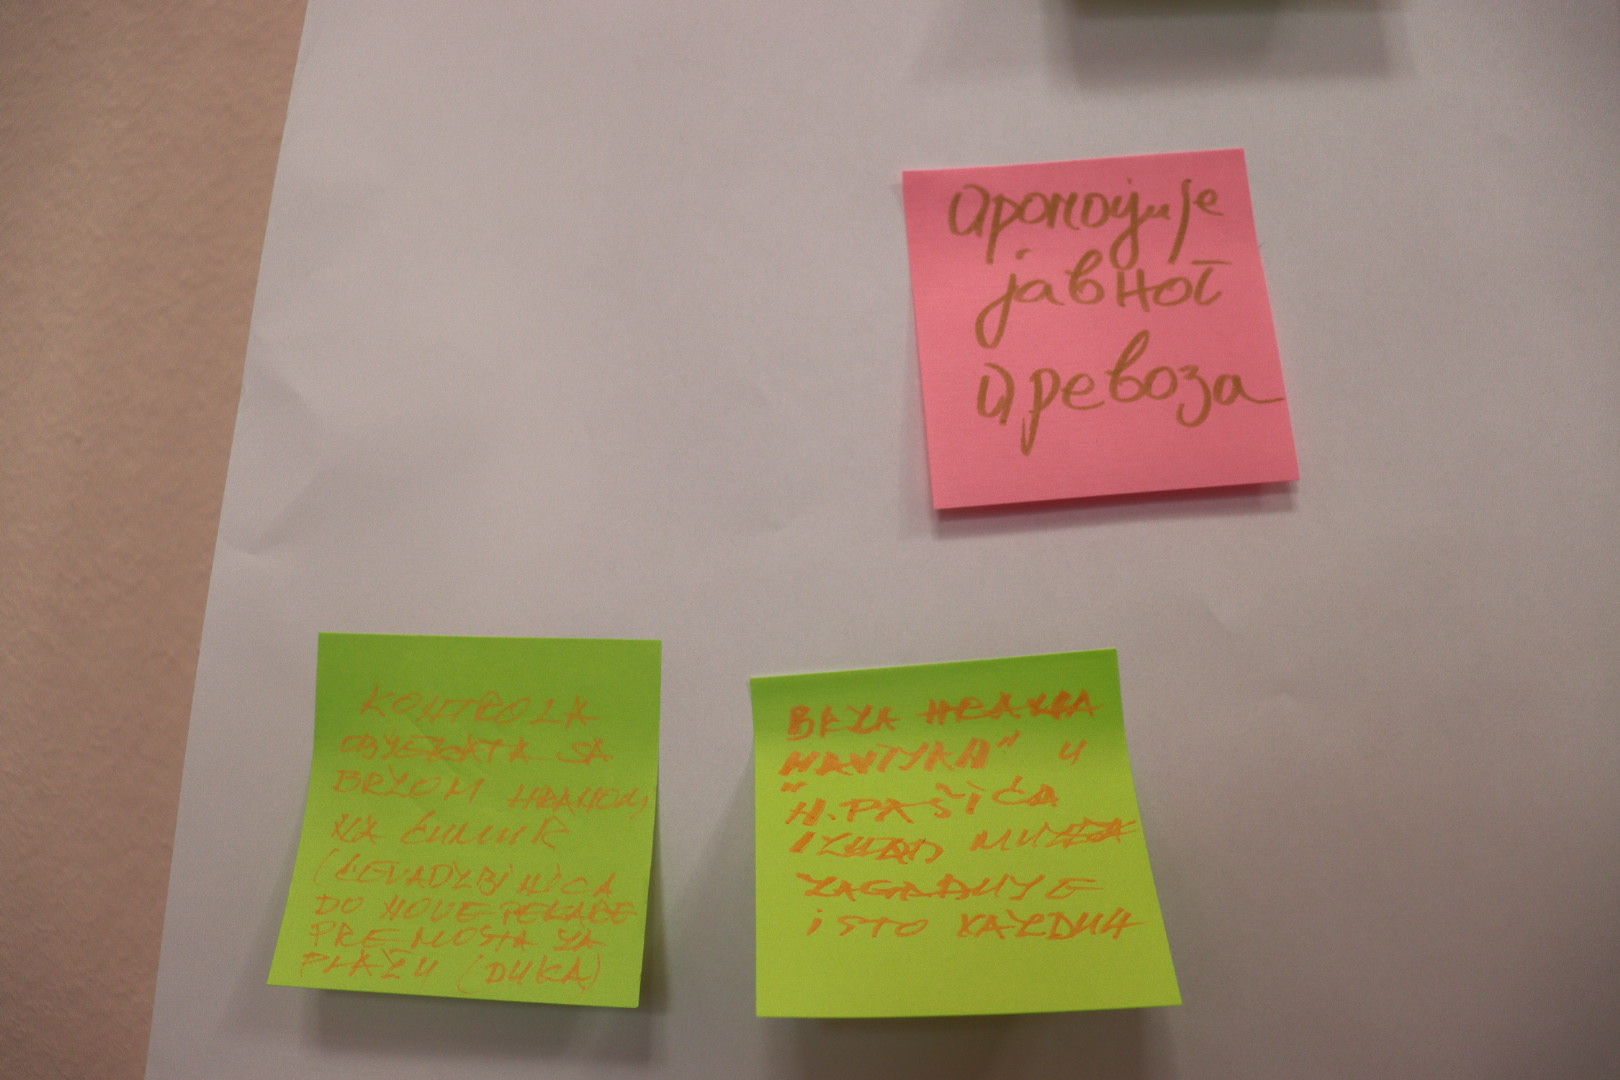 промоције
јавног
превоза
KONTROLA
OBJEKATA SA
BRZOM HRANOM
NA ĆUMUR
(ĆEVADŽBINICA
DO NOVE PEKARE
PRE MOSTA ZA
PLAŽU (DUKA)
BRZA HRANA
U
"N. PAŠIĆA
IZNAD MUZEJA
ZAGAĐUJE
ISTO VAZDUH